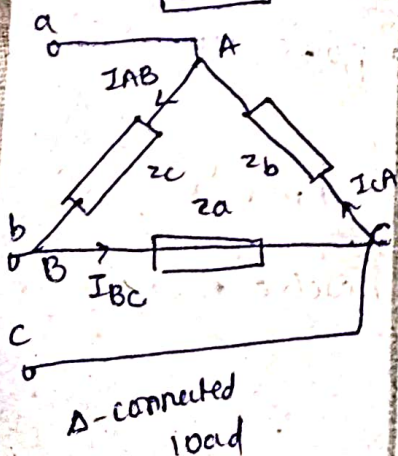 a
A
IAB
zc
zb
ICA
za
b
B
IBC
C
c
Δ-connected
load